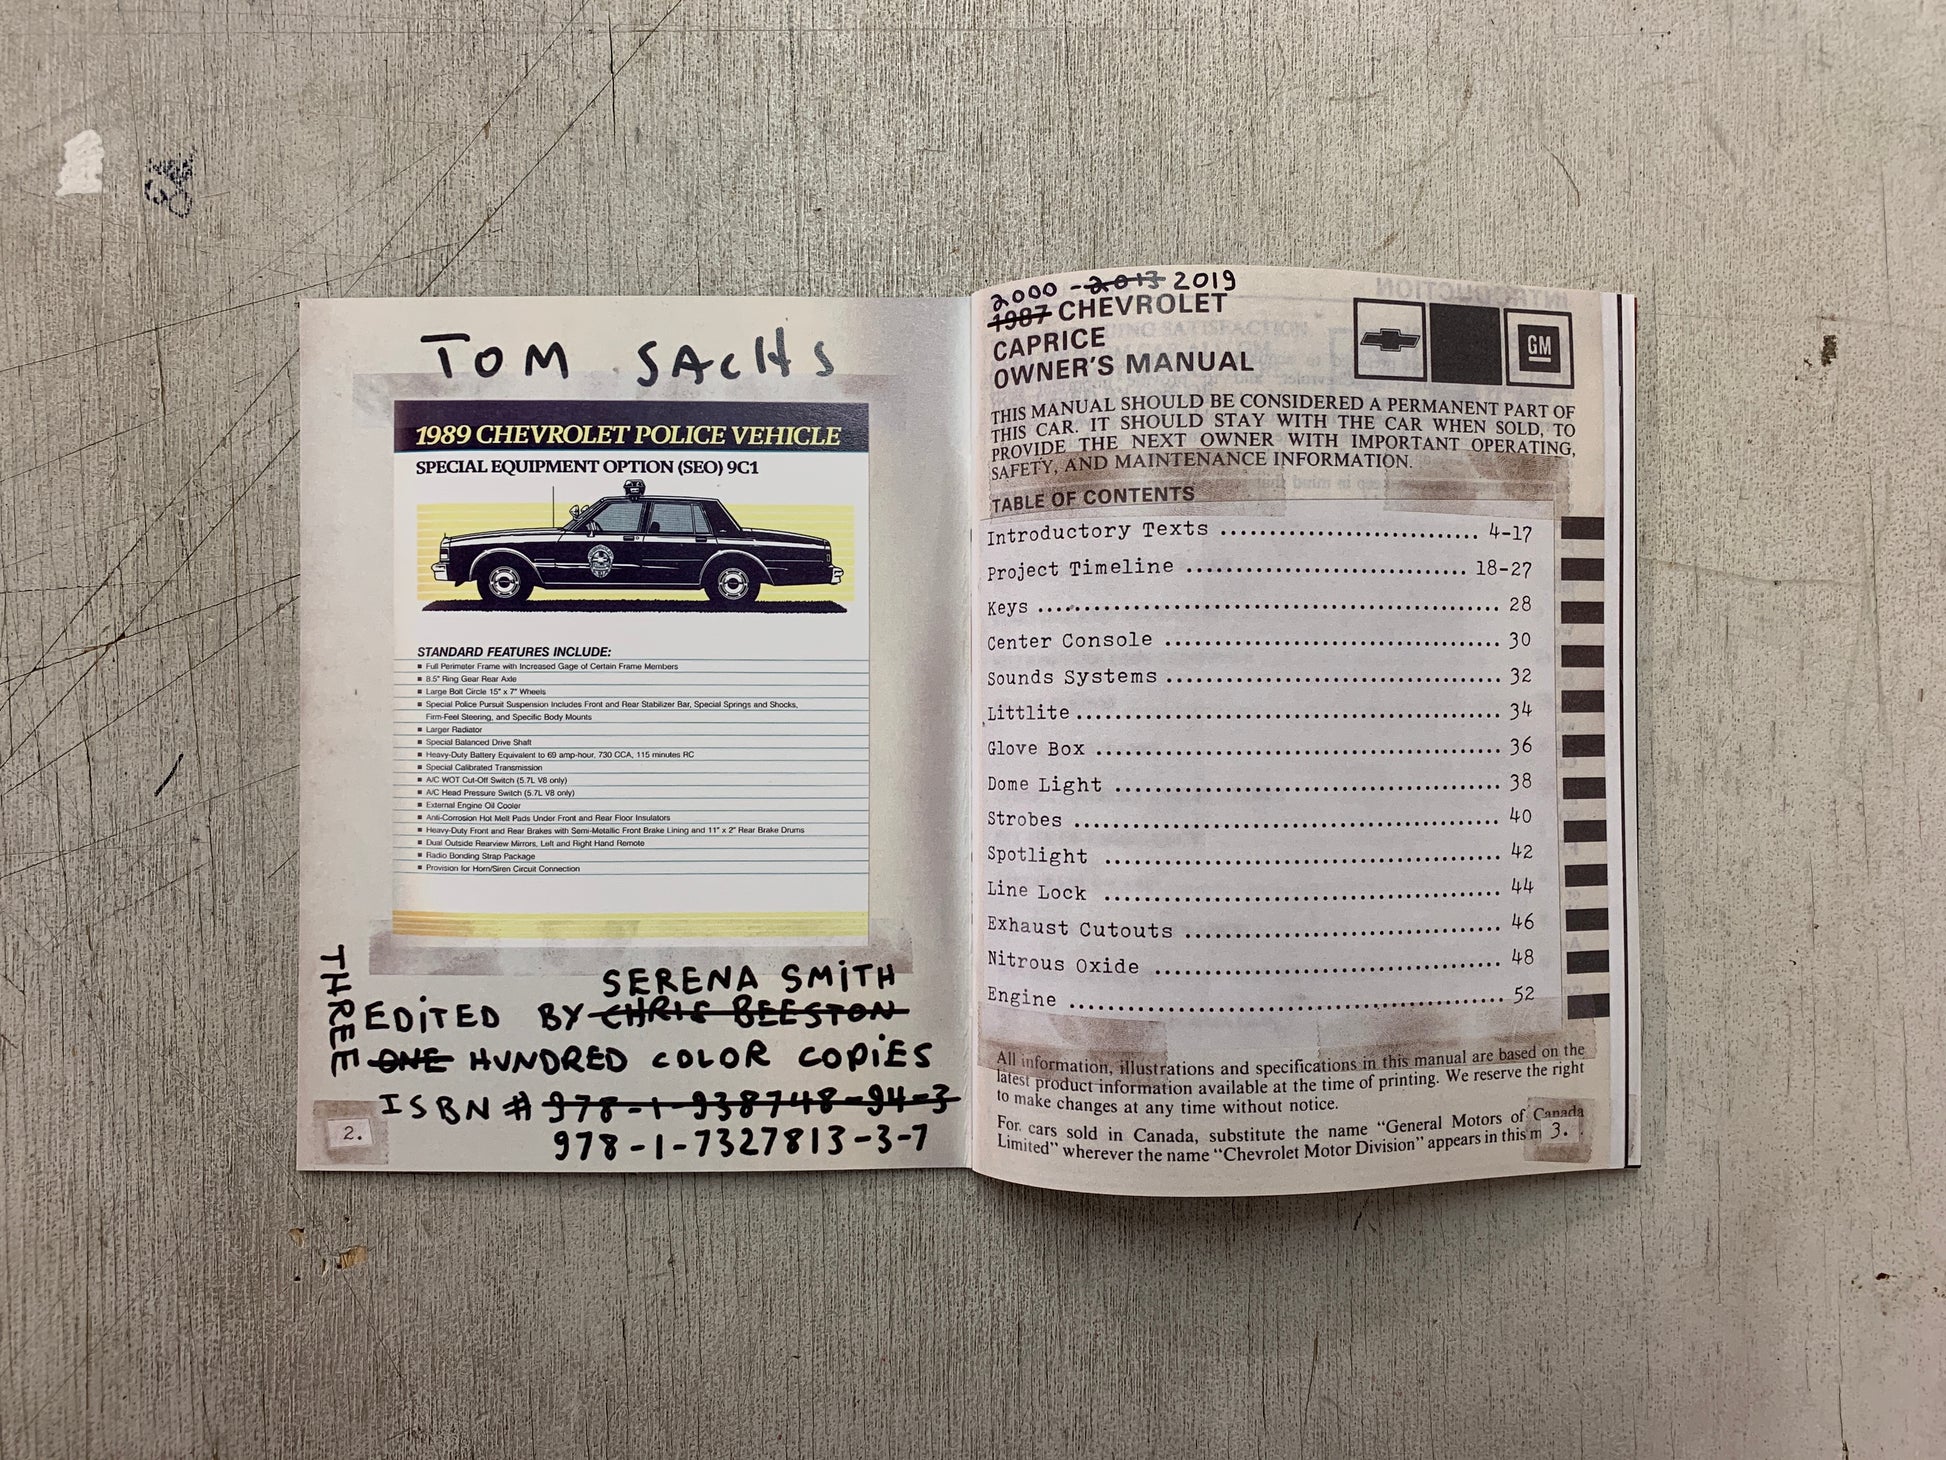 TOM SACHS
1989 CHEVROLET POLICE VEHICLE
SPECIAL EQUIPMENT OPTION (SEO) 9C1
STANDARD FEATURES INCLUDE:
■ Full Perimeter Frame with Increased Gage of Certain Frame Members
■ 8.5" Ring Gear Rear Axle
■ Large Bolt Circle 15" x 7" Wheels
■ Special Police Pursuit Suspension Includes Front and Rear Stabilizer Bar, Special Springs and Shocks,
Firm-Feel Steering, and Specific Body Mounts
■ Larger Radiator
■ Special Balanced Drive Shaft
■ Heavy-Duty Battery Equivalent to 69 amp-hour, 730 CCA, 115 minutes RC
■ Special Calibrated Transmission
■ A/C WOT Cut-Off Switch (5.7L V8 only)
■ A/C Head Pressure Switch (5.7L V8 only)
■ External Engine Oil Cooler
■ Anti-Corrosion Hot Melt Pads Under Front and Rear Floor Insulators
■ Heavy-Duty Front and Rear Brakes with Semi-Metallic Front Brake Lining and 11" x 2" Rear Brake Drums
■ Dual Outside Rearview Mirrors, Left and Right Hand Remote
■ Radio Bonding Strap Package
■ Provision for Horn/Siren Circuit Connection
SERENA SMITH
EDITED BY CHRIS BEESTON
THREE
ONE HUNDRED COLOR COPIES
ISBN # 978-1-938748-94-3
978-1-7327813-3-7
2.
2000 - 2013 2019
1987 CHEVROLET
CAPRICE
OWNER'S MANUAL
GM
THIS MANUAL SHOULD BE CONSIDERED A PERMANENT PART OF
THIS CAR. IT SHOULD STAY WITH THE CAR WHEN SOLD, TO
PROVIDE THE NEXT OWNER WITH IMPORTANT OPERATING,
SAFETY, AND MAINTENANCE INFORMATION.
TABLE OF CONTENTS
Introductory Texts ............................ 4-17
Project Timeline .............................. 18-27
Keys .................................................. 28
Center Console .................................... 30
Sounds Systems .................................... 32
Littlite .............................................. 34
Glove Box ............................................ 36
Dome Light .......................................... 38
Strobes .............................................. 40
Spotlight ............................................ 42
Line Lock ............................................ 44
Exhaust Cutouts .................................. 46
Nitrous Oxide ...................................... 48
Engine ................................................ 52
All information, illustrations and specifications in this manual are based on the
latest product information available at the time of printing. We reserve the right
to make changes at any time without notice.
For cars sold in Canada, substitute the name "General Motors of Canada
Limited" wherever the name "Chevrolet Motor Division" appears in this m
3.